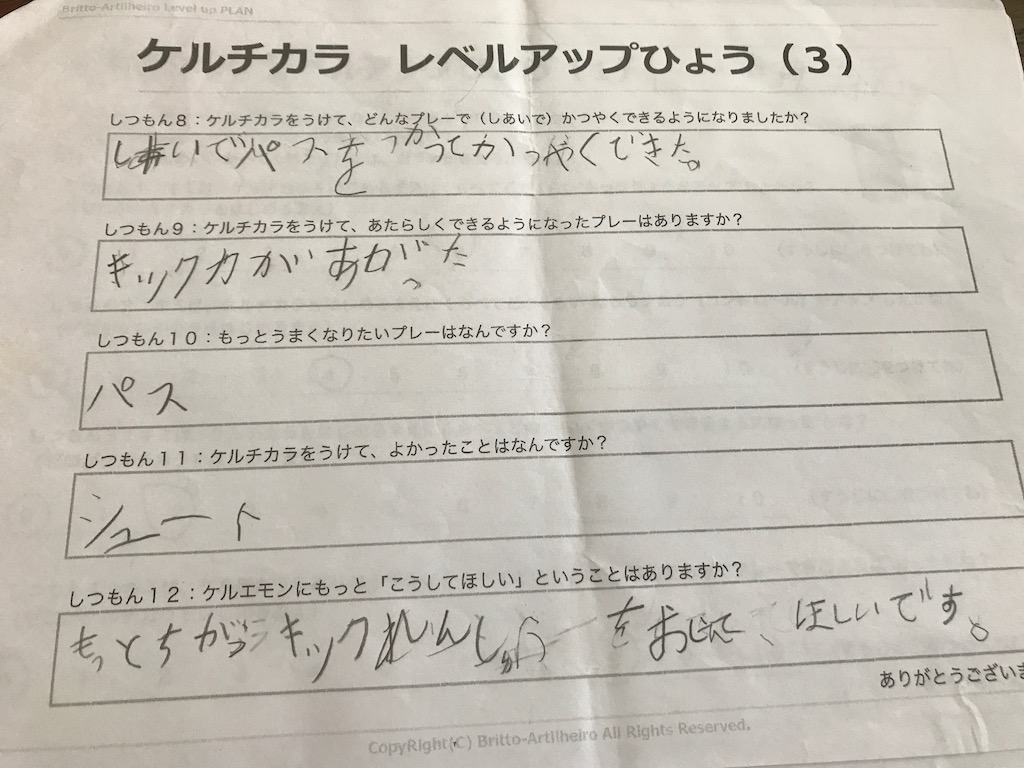 Britto-Artilheiro Level up PLAN
ケルチカラ　レベルアップひょう（３）
しつもん８：ケルチカラをうけて、どんなプレーで（しあいで）かつやくできるようになりましたか？
しあいでパスをつかってかつやくできた。
しつもん９：ケルチカラをうけて、あたらしくできるようになったプレーはありますか？
キック力があがった
しつもん１０：もっとうまくなりたいプレーはなんですか？
パス
しつもん１１：ケルチカラをうけて、よかったことはなんですか？
シュート
しつもん１２：ケルエモンにもっと「こうしてほしい」ということはありますか？
もっとちがうキックれんしゅうをおしえて、ほしいです。
ありがとうございま
CopyRight(C) Britto-Artilheiro All Rights Reserved.